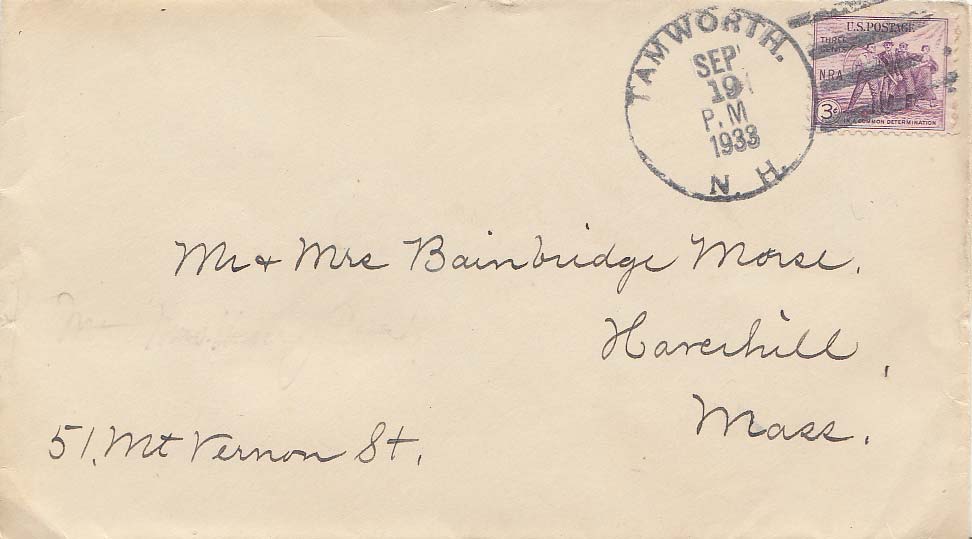 TAMWORTH.
SEP
19
P.M
1933
N. H.
U.S. POSTAGE
THREE CENTS
N.R.A.
3c
IN A COMMON DETERMINATION
Mr + Mrs Bainbridge Morse.
Haverhill,
Mass.
51. Mt Vernon St.